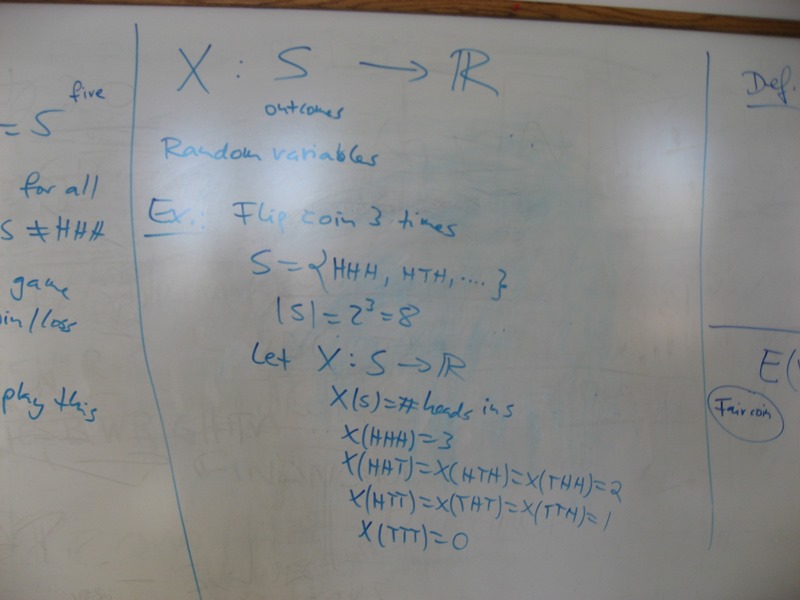 five
= S
for all
S ≠ HHH
game
in/loss
play this
X : S → ℝ
outcomes
Random variables
Ex.: Flip coin 3 times
S = {HHH, HTH, .... }
|S| = 2³ = 8
Let X : S → ℝ
X(s) = # heads in s
X(HHH) = 3
X(HHT) = X(HTH) = X(THH) = 2
X(HTT) = X(THT) = X(TTH) = 1
X(TTT) = 0
Def.
E(
Fair coin